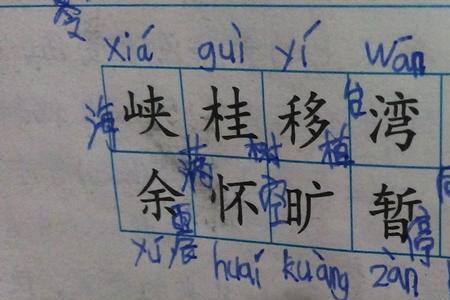 xiá guì yí wān
海峡 桂树 移植 台湾
余震 满怀 空旷 暂停
yú huaí kuàng zàn